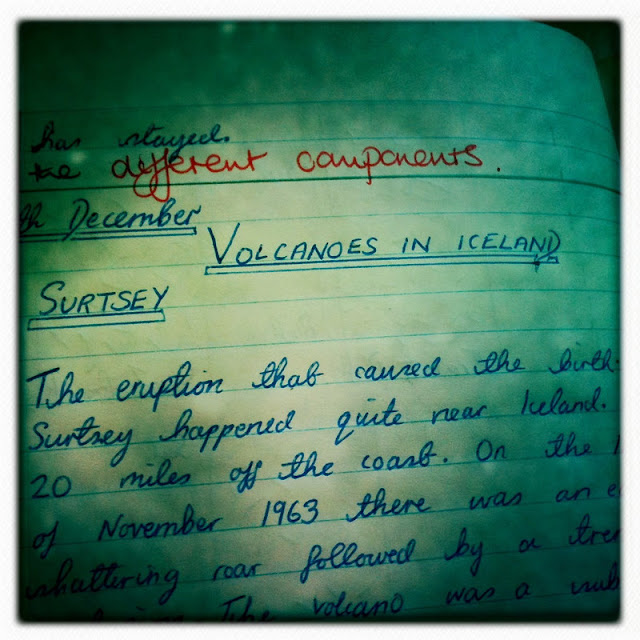 has stayed.
the different components.
th December
VOLCANOES IN ICELAND
SURTSEY
The eruption that caused the birth
Surtsey happened quite near Iceland.
20 miles off the coast. On the
of November 1963 there was an
shattering roar followed by a
The volcano was a